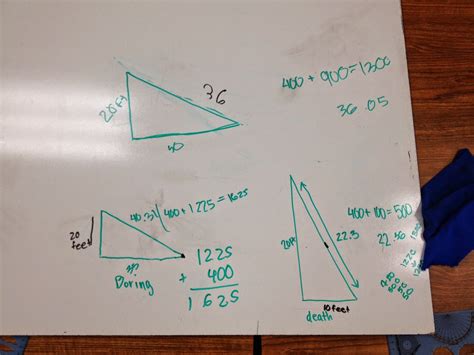 20 Ft
36
400 + 900 = 1300
36.05
20
feet
40.31
400 + 1225 = 1625
Boring
1225
+ 400
1625
20 ft
22.3
10 feet
death
400 + 100 = 500
22.36